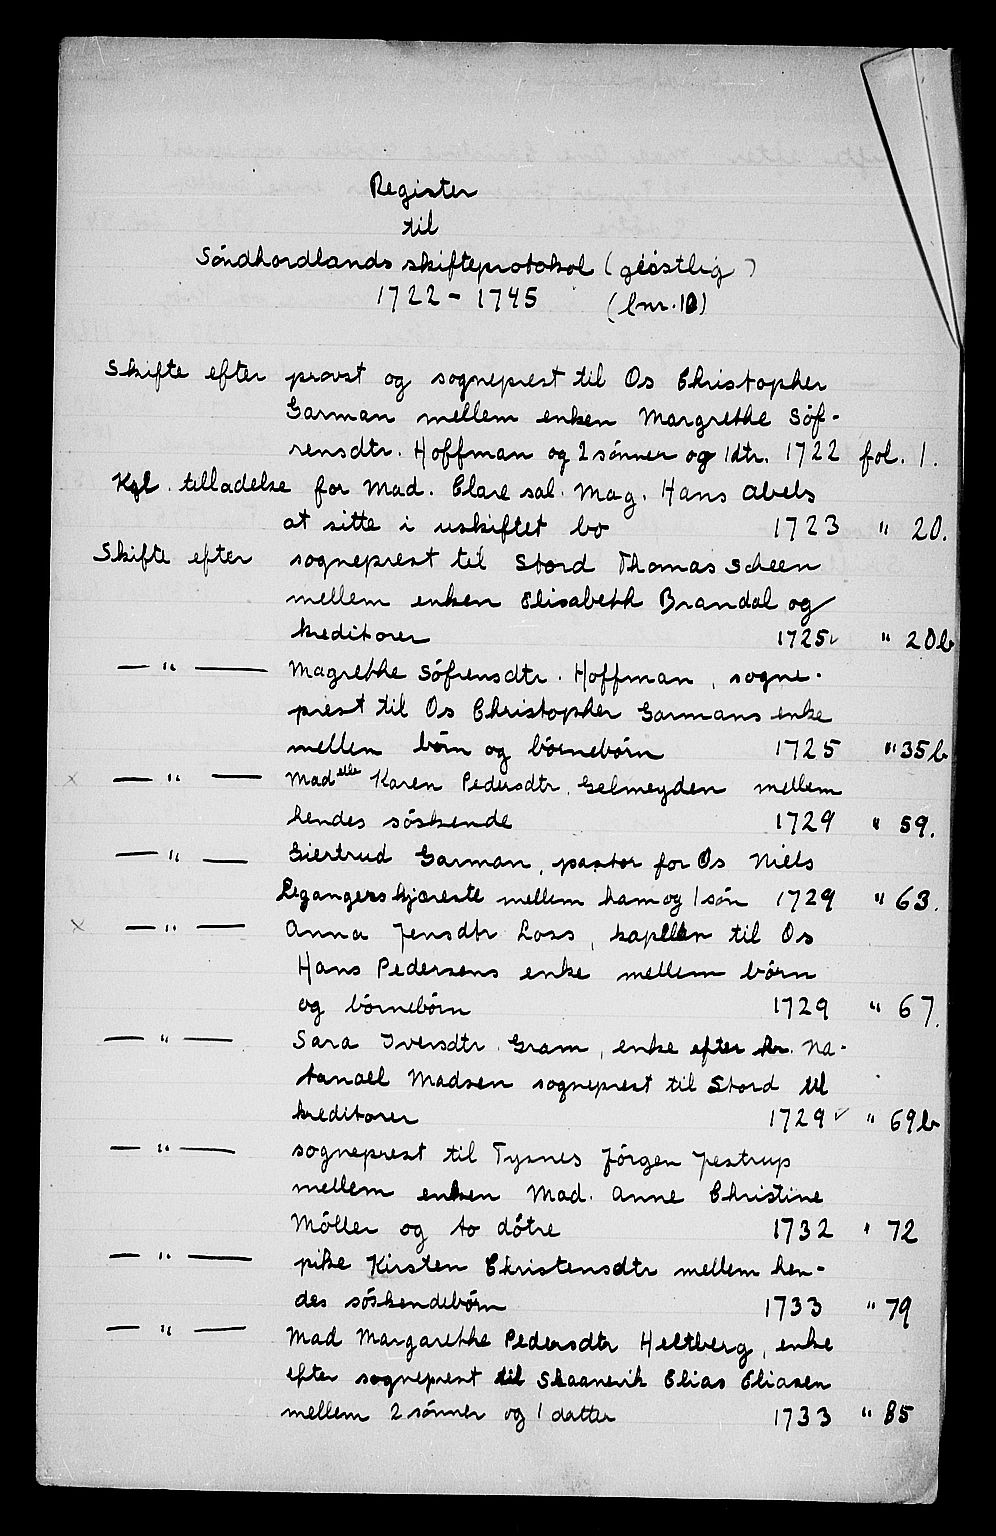 Register
til
Söndhordlands skifteprotokol (geistlig)
1722 - 1745 (lnr. 10)
Skifte efter provst og sogneprest til Os Christopher
Garman mellem enken Margrethe Söf-
rensdtr. Hoffman og 2 sönner og 1 dtr. 1722 fol. 1.
Kgl. tilladelse for Mad. Clare sal. Mag. Hans Abels
at sitte i uskiftet bo 1723 " 20.
Skifte efter sogneprest til Stord Thomas Scheen
mellem enken Elisabeth Brandal og
kreditorer 1725 ✓ " 20b
— " — Magrethe Söfrensdtr. Hoffman, sogne-
prest til Os Christopher Garmans enke
mellen börn og börnebörn 1725 " 35b
x — " — Madelle Karen Pedersdtr. Gelmeyden mellem
hendes söskende 1729 " 59.
— " — Giertrud Garman, pastor for Os Niels
Legangers kjæreste mellem ham og 1 sön 1729 " 63.
x — " — Anna Jensdtr Loss, kapellan til Os
Hans Pedersens enke mellem börn
og börnebörn 1729 " 67.
— " — Sara Iversdtr. Gram, enke efter hr. Na-
tanael Madsen sogneprest til Stord til
kreditorer 1729 ✓ " 69b
— " — sogneprest til Tysnes Jörgen Jestrup
mellem enken Mad. Anne Christine
Möller og to dötre 1732 " 72
— " — pike Kirsten Christensdtr mellem hen-
des söskendebörn 1733 " 79
— " — Mad Margarethe Pedersdtr Heltberg, enke
efter sogneprest til Skaanevik Elias Eliasen
mellem 2 sönner og 1 datter 1733 " 85